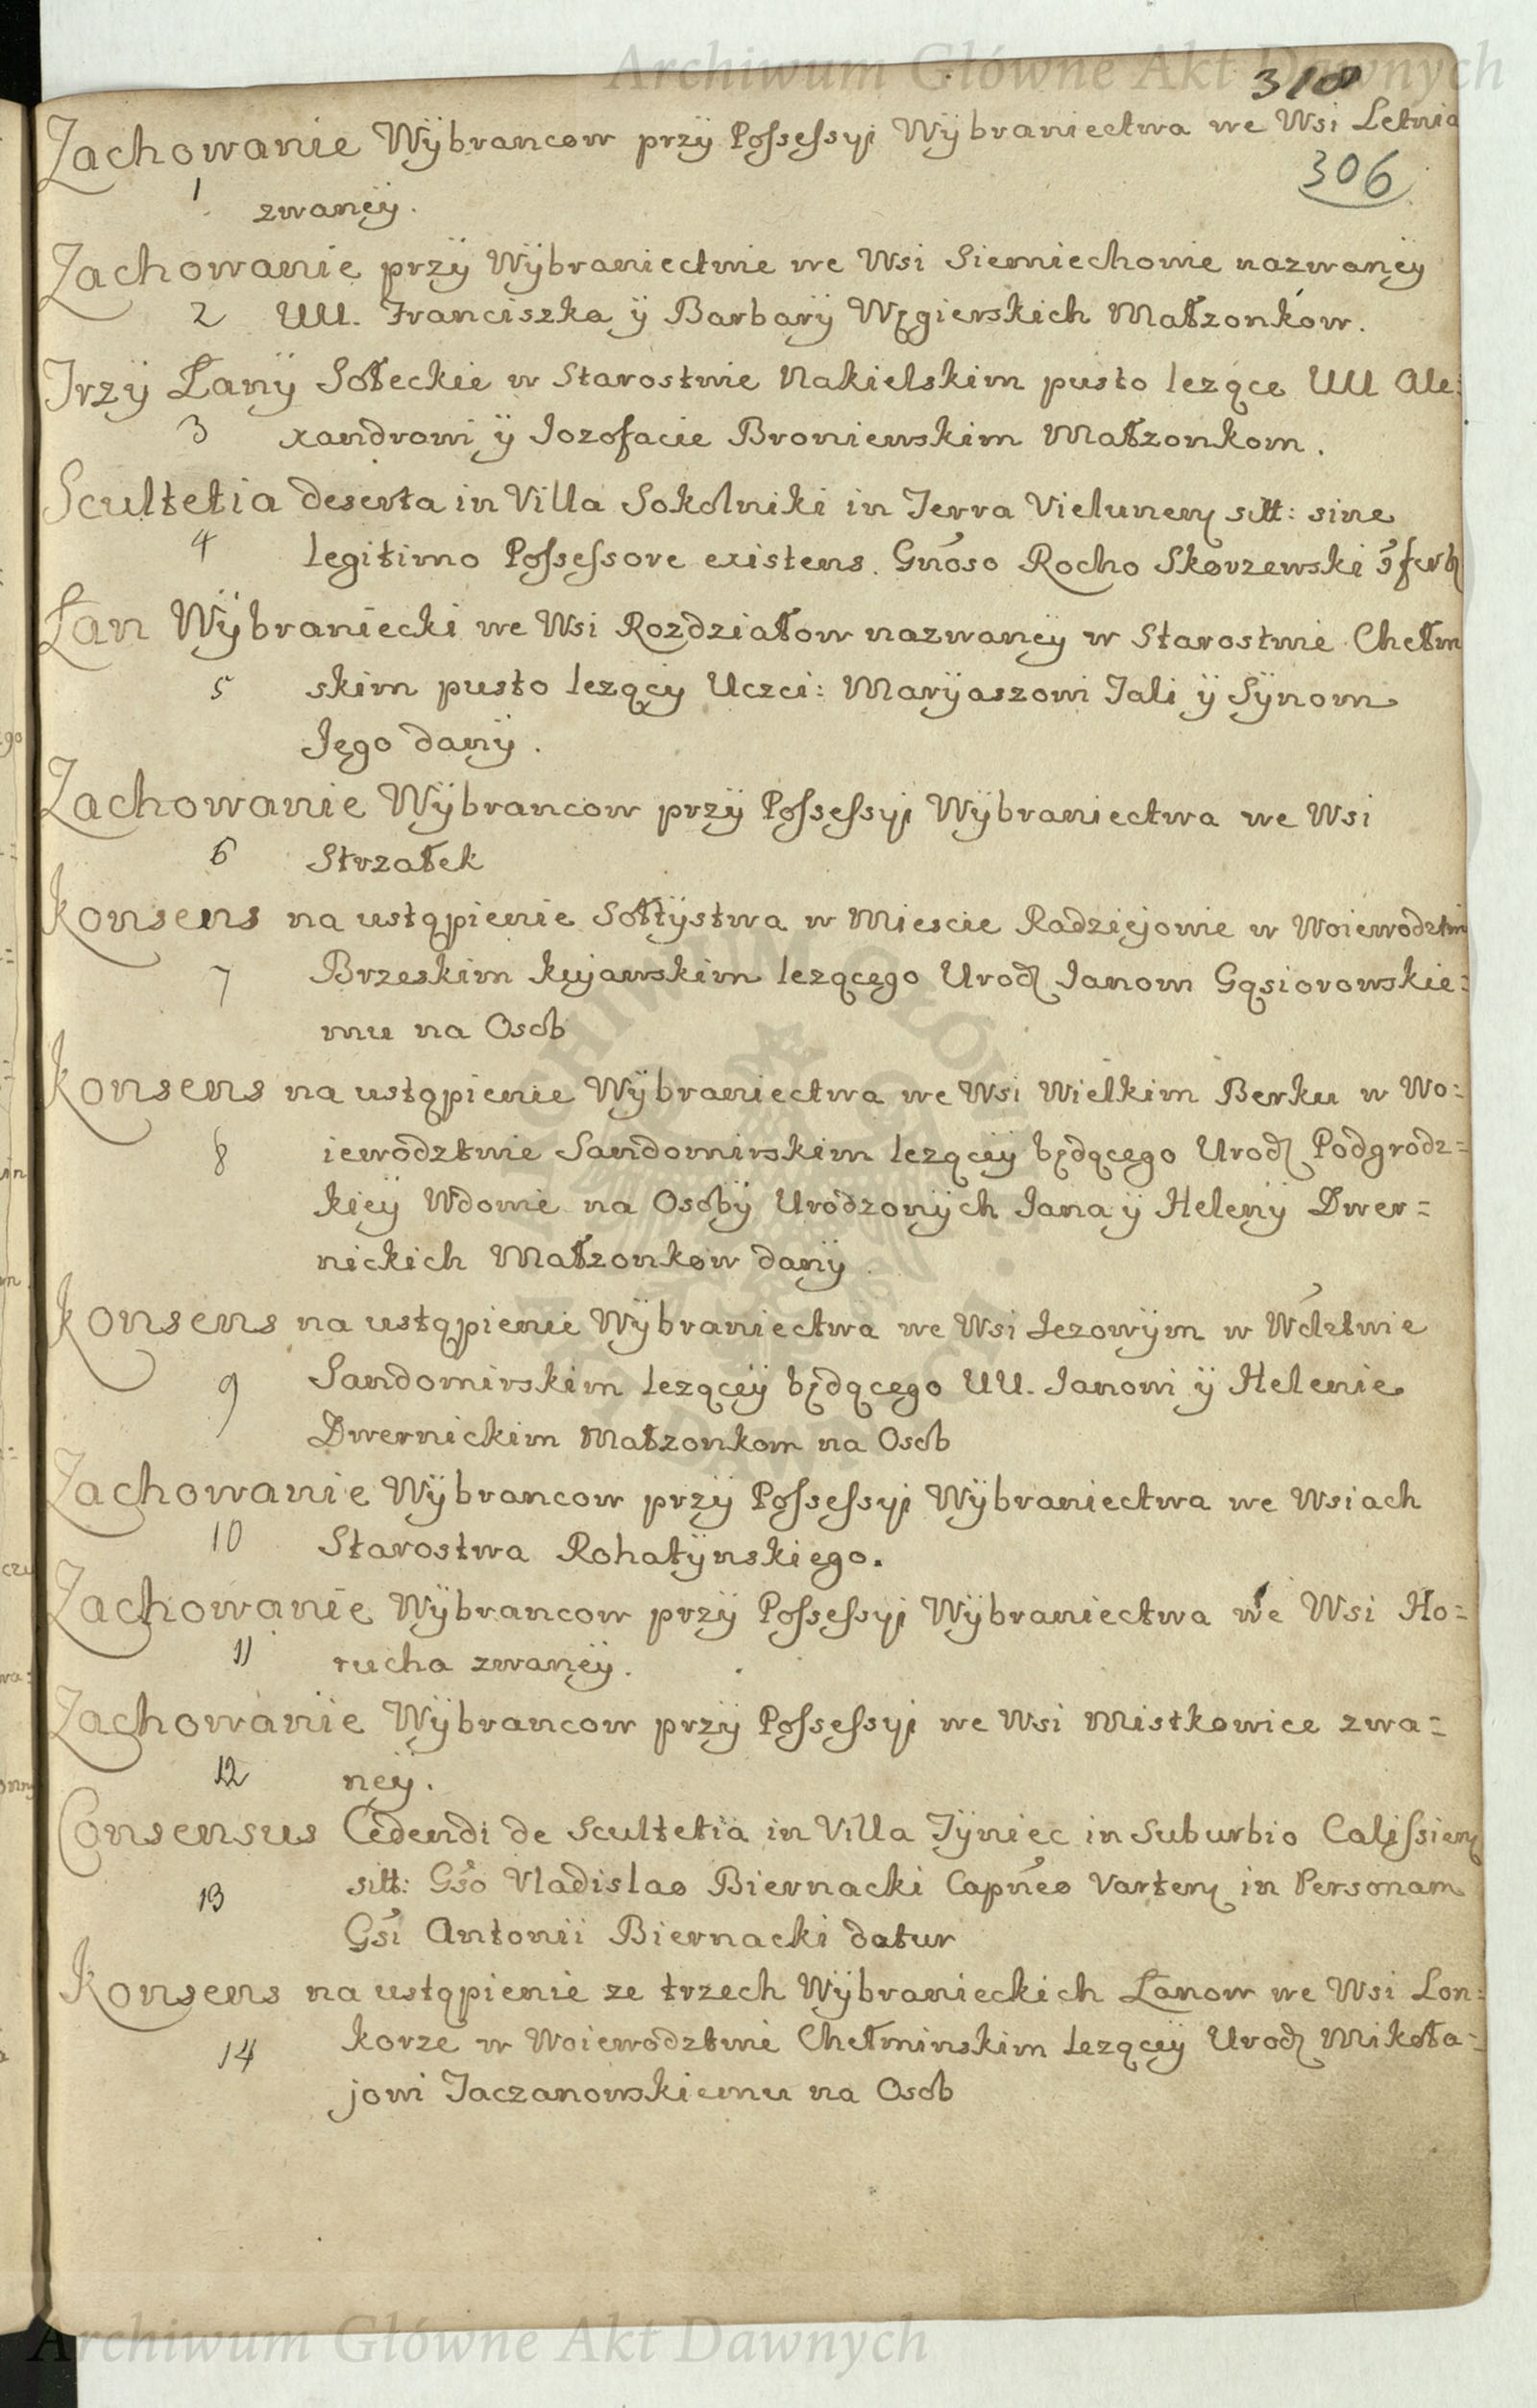 Archiwum Główne Akt Dawnych
318
Zachowanie Wÿbrancow przÿ Possessyi Wÿbraniectwa we Wsi Letnia
306
1 zwanеÿ.
Zachowanie przÿ Wÿbraniectwie we Wsi Siemiechowie nazwaneÿ
2 UU. Franciszka ÿ Barbarÿ Węgierskich Małzonków.
Trzÿ Łanÿ Sołeckie w Starostwie Nakielskim pusto lezące UU Ale:
3 xandrowi ÿ Jozefacie Broniewskim Małzonkom.
Scultetia deserta in Villa Sokolniki in Terra Vielunen sitt: sine
4 legitimo Possessore existens. Gnoso Rocho Skorzewski
Łan Wÿbraniecki we Wsi Rozdziałow nazwaneÿ w Starostwie Chełm
5 skim pusto lezącÿ Uczci: Marÿaszowi Jali ÿ Sÿnom
Jego danÿ.
Zachowanie Wÿbrancow przÿ Possessyi Wÿbraniectwa we Wsi
6 Strzałek
Konsens na ustąpienie Sołtÿstwa w Miescie Radziejowie w Woiewodztwi
7 Brzeskim kujawskim lezącego Urod Janowi Gąsiorowskie:
mu na Osob
Konsens na ustąpienie Wÿbraniectwa we Wsi Wielkim Berku w Wo:
8 iewodztwie Sandomirskim leząceÿ będącego Urod Podgrodz=
kieÿ Wdowie na Osobÿ Urodzonÿch Jana ÿ Helenÿ Dwer=
nickich Małzonkow danÿ
Konsens na ustąpienie Wÿbraniectwa we Wsi Jezowÿm w Wdztwie
9 Sandomirskim leząceÿ będącego UU. Janowi ÿ Helenie
Dwernickim Małzonkom na Osob
Zachowanie Wÿbrancow przÿ Possessyi Wÿbraniectwa we Wsiach
10 Starostwa Rohatÿnskiego.
Zachowanie Wÿbrancow przÿ Possessyi Wÿbraniectwa we Wsi Ho=
11 rucha zwaneÿ.
Zachowanie Wÿbrancow przÿ Possessyi we Wsi Mistkowice zwa=
12 neÿ.
Consensus Cedendi de Scultetia in Villa Tÿniec in Suburbio Calissien
13 sitt: Gso Vladislao Biernacki Capneo Varten in Personam
Gsi Antonii Biernacki datur
Konsens na ustąpienie ze trzech Wÿbranieckich Łanow we Wsi Lon=
14 korze w Woiewodztwie Chełminskim leząceÿ Urod Mikoła=
jowi Jaczanowskiemu na Osob
Archiwum Główne Akt Dawnych